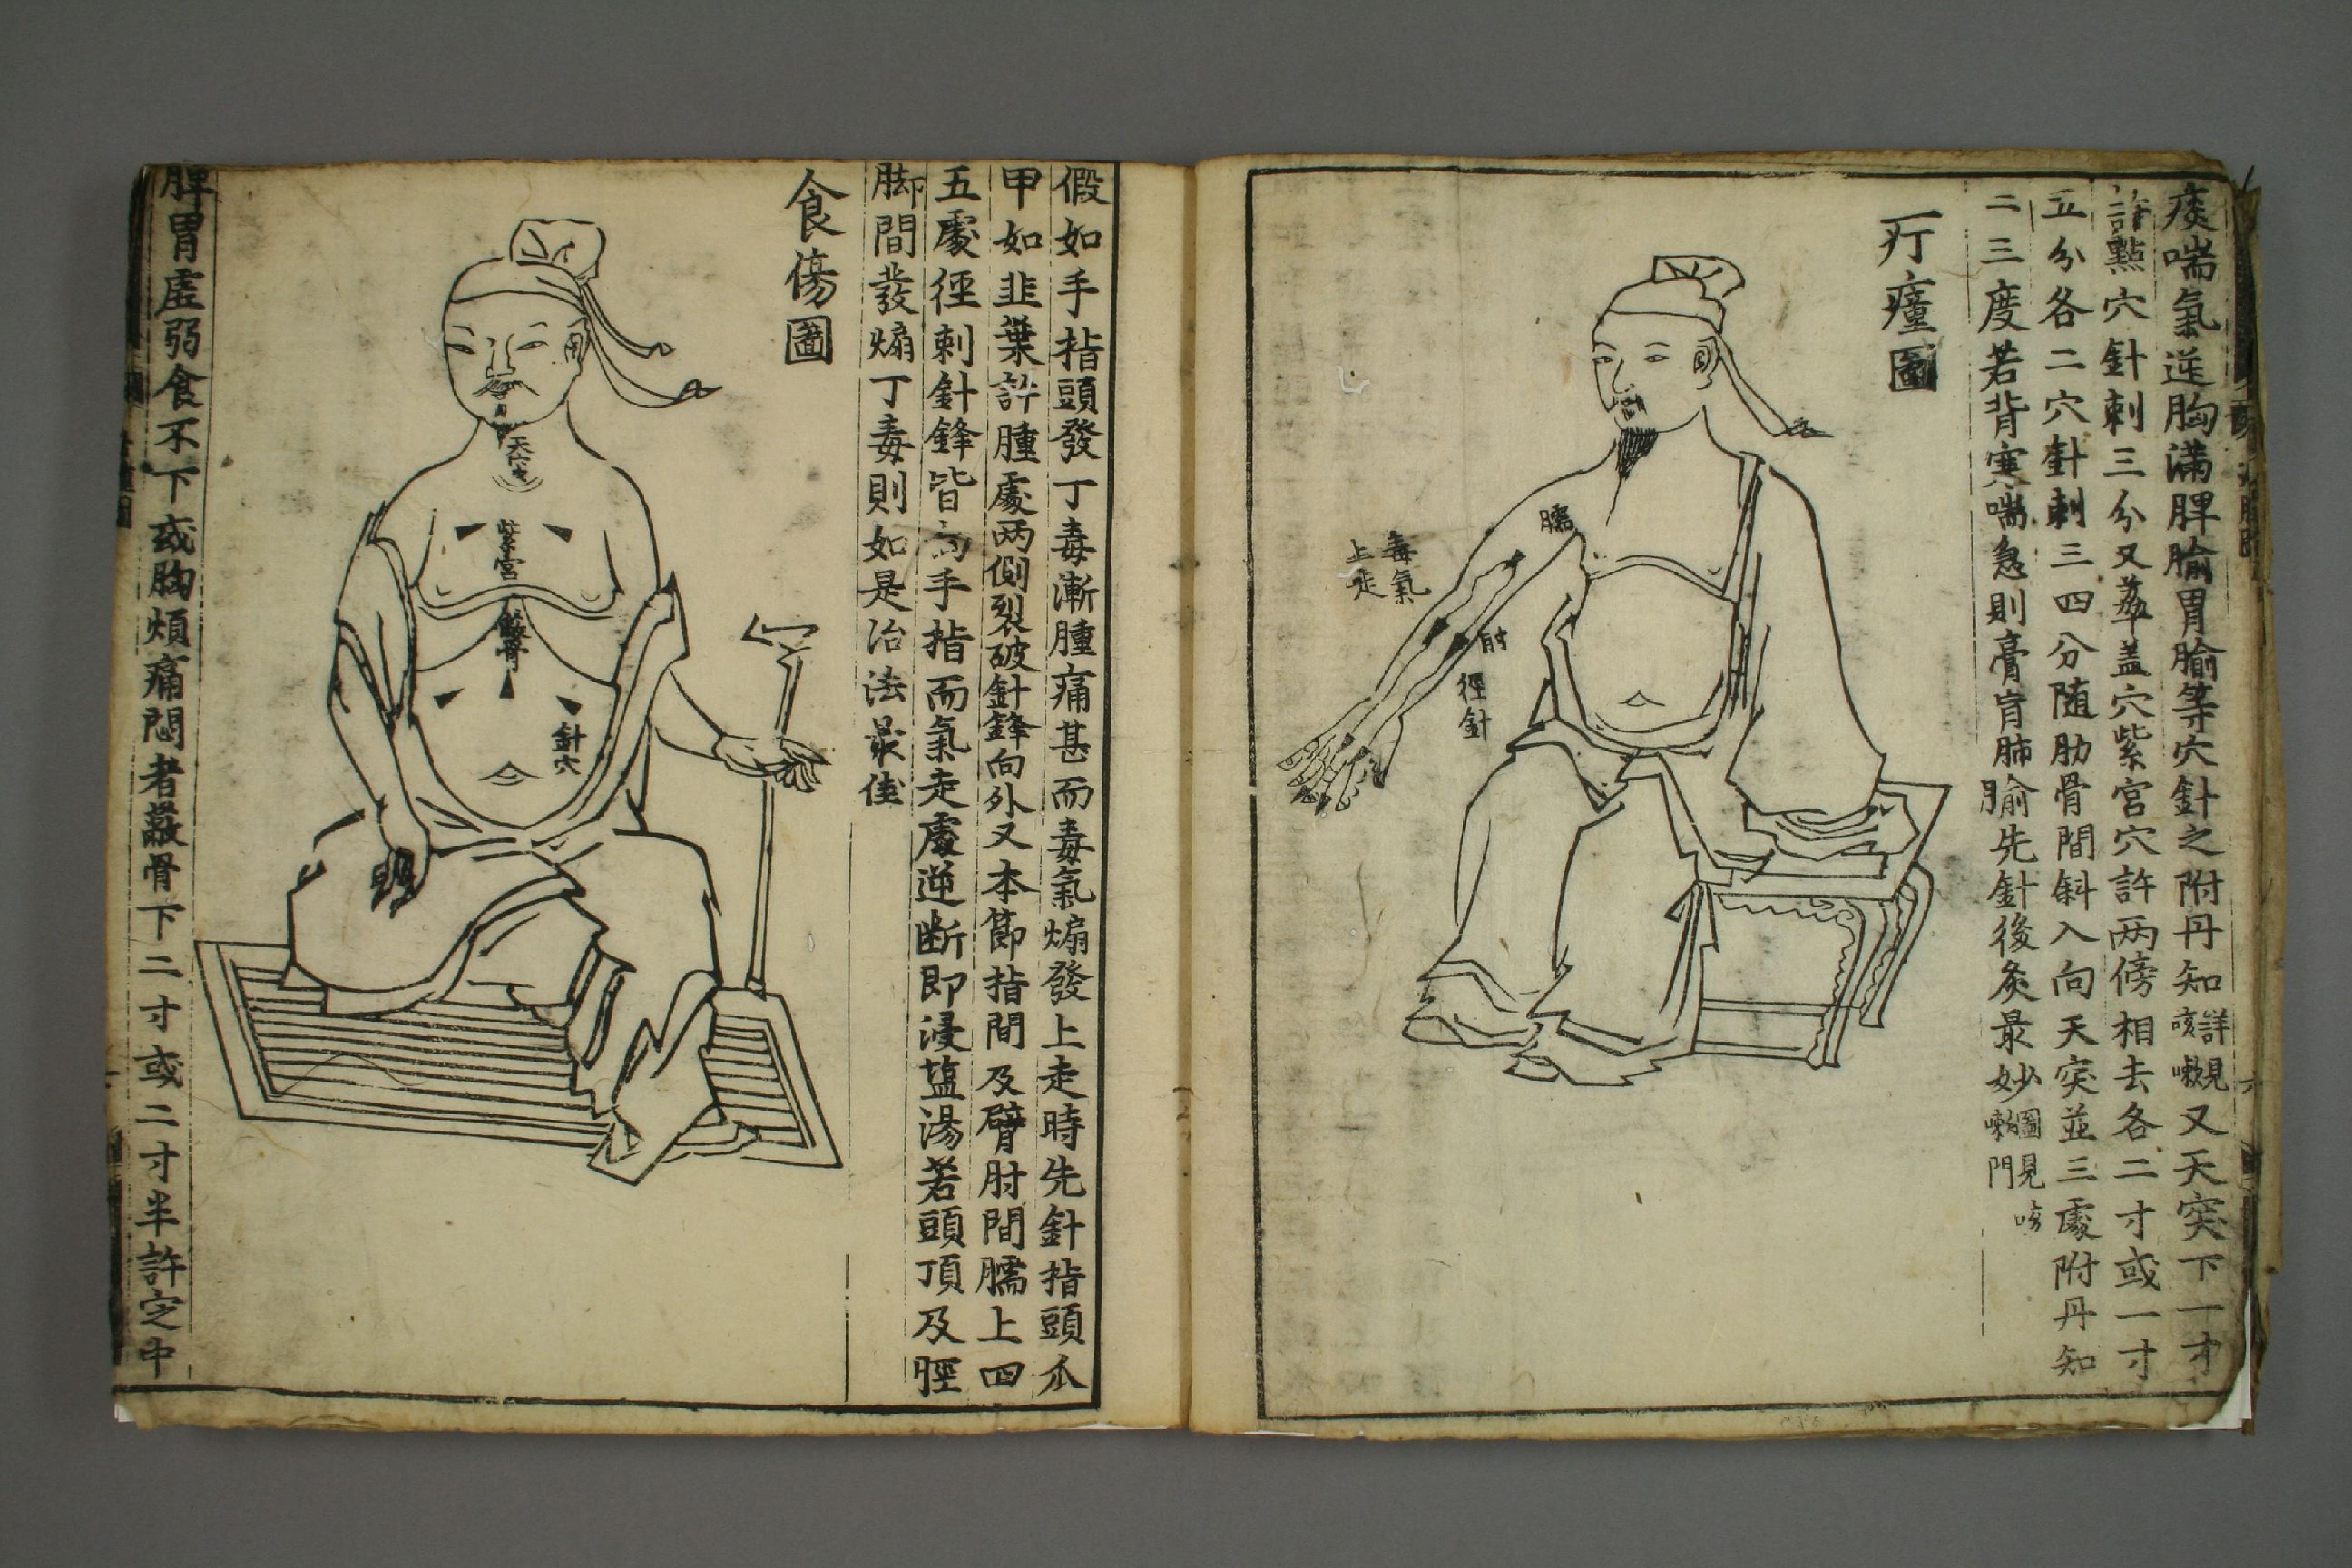 痰喘氣逆胸滿脾腧胃腧等穴針之附丹知詳見咳嗽又天突下一寸
許點穴針刺三分又華盖穴紫宮穴許两傍相去各二寸或一寸
五分各二穴針刺三四分随肋骨間斜入向天突並三處附丹知
二三度若背寒喘急則膏肓肺腧先針後灸最妙圖見咳嗽門
疔瘇圖
臑
毒氣
上走
肘
徑針
假如手指頭發丁毒漸腫痛甚而毒氣煽發上走時先針指頭爪
甲如韭葉許腫處两側裂破針鋒向外又本節指間及臂肘間臑上四
五處徑刺針鋒皆向手指而氣走處逆断即浸塩湯若頭頂及脛
脚間發煽丁毒則如是治法最佳
食傷圖
天突
紫宮
蔽骨
針穴
脾胃虛弱食不下或胸煩痛悶者蔽骨下二寸或二寸半許定中